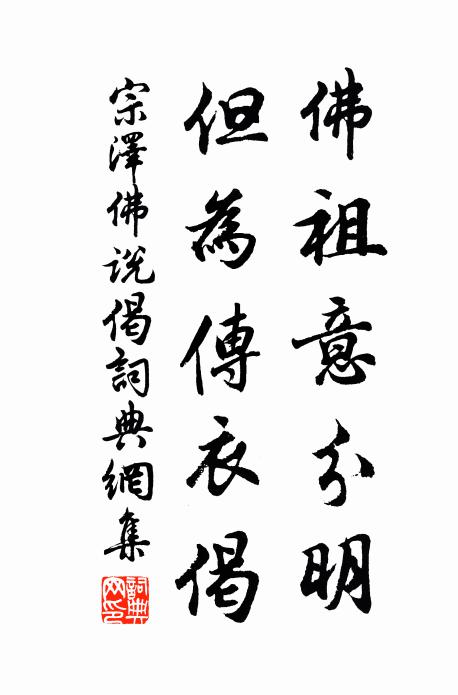 佛祖意分明
但為傳衣偈
宗澤佛説偈詞典網集
詞典網印